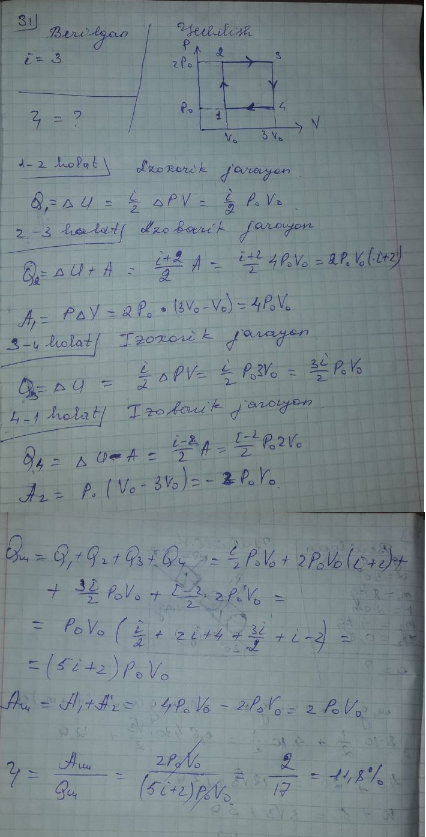 31) Berilgan
Yechilish
i = 3
η = ?
P
2P₀
2
3
P₀
1
4
V₀
3V₀
V
1-2 holat / Izoxorik jarayon
Q₁ = ΔU = i/2 ΔPV = i/2 P₀V₀
2-3 holat / Izobarik jarayon
Q₂ = ΔU + A = (i+2)/2 A = (i+2)/2 4P₀V₀ = 2P₀V₀(i+2)
A₁ = PΔV = 2P₀ · (3V₀ - V₀) = 4P₀V₀
3-4 holat / Izoxorik jarayon
Q₃ = ΔU = i/2 ΔPV = i/2 P₀3V₀ = 3i/2 P₀V₀
4-1 holat / Izobarik jarayon
Q₄ = ΔU - A = (i-2)/2 A = (i-2)/2 P₀2V₀
A₂ = P₀(V₀ - 3V₀) = -2P₀V₀
Qᵤₘ = Q₁ + Q₂ + Q₃ + Q₄ = i/2 P₀V₀ + 2P₀V₀(i+2) +
+ 3i/2 P₀V₀ + (i-2)/2 2P₀V₀ =
= P₀V₀ (i/2 + 2i + 4 + 3i/2 + i - 2) =
= (5i+2) P₀V₀
Aᵤₘ = A₁ + A₂ = 4P₀V₀ - 2P₀V₀ = 2P₀V₀
η = Aᵤₘ/Qᵤₘ = 2P₀V₀/(5i+2)P₀V₀ = 2/17 = 11,8%